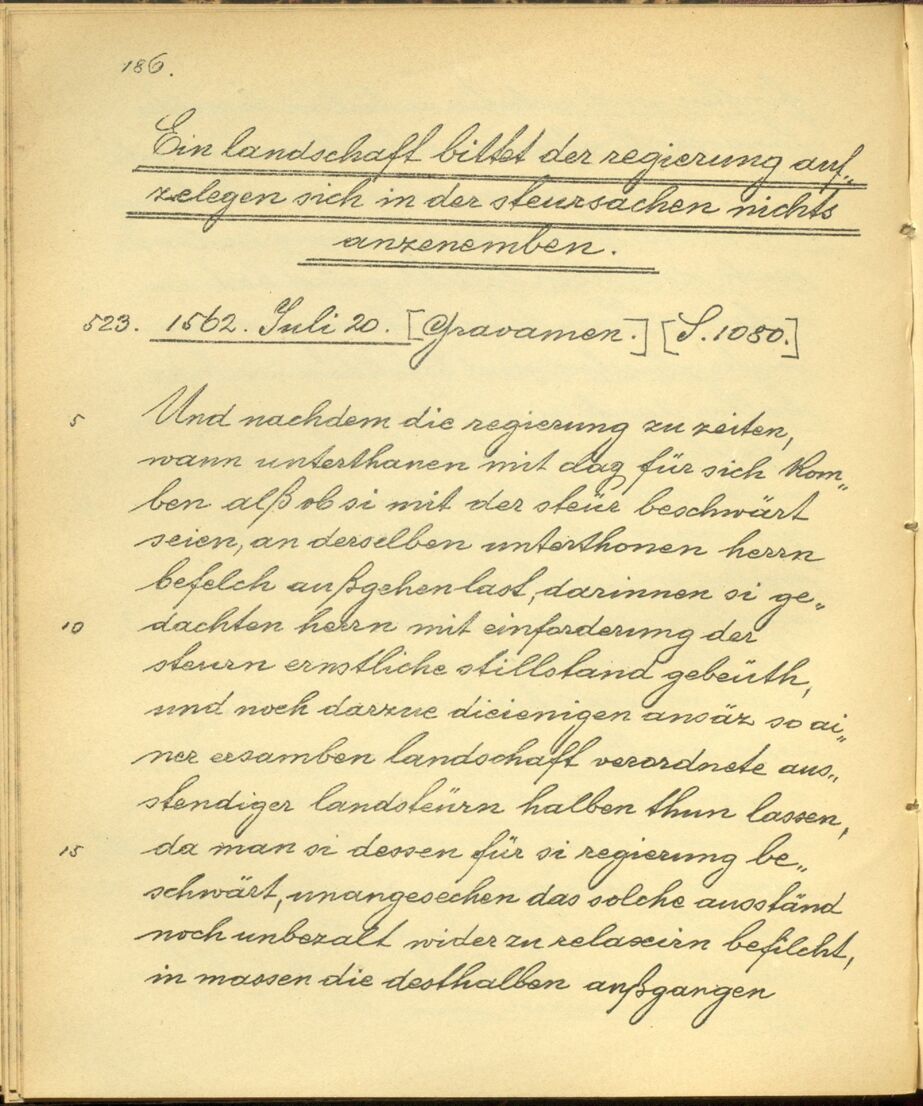 186.
Ein landschaft bittet der regierung auf„
zelegen sich in der steursachen nichts
anzenemben.
523. 1562. Juli 20. [Gravamen.] [S. 1080.]
5 Und nachdem die regierung zu zeiten,
wann unterthanen mit clag für sich kom„
ben alß ob si mit der steür beschwärt
seien, an derselben unterthonen herrn
befelch außgehen last, darinnen si ge„
10 dachten herrn mit einforderung der
steurn ernstliche stillstand gebeüth,
und noch darzue dieienigen ansäz so ai„
ner ersamben landschaft verordnete aus„
stendiger landsteürn halben thun lassen,
15 da man si dessen für si regierung be„
schwärt, unangesechen das solche ausständ
noch unbezalt wider zu relaxirn befilcht,
in massen die desthalben außgangen